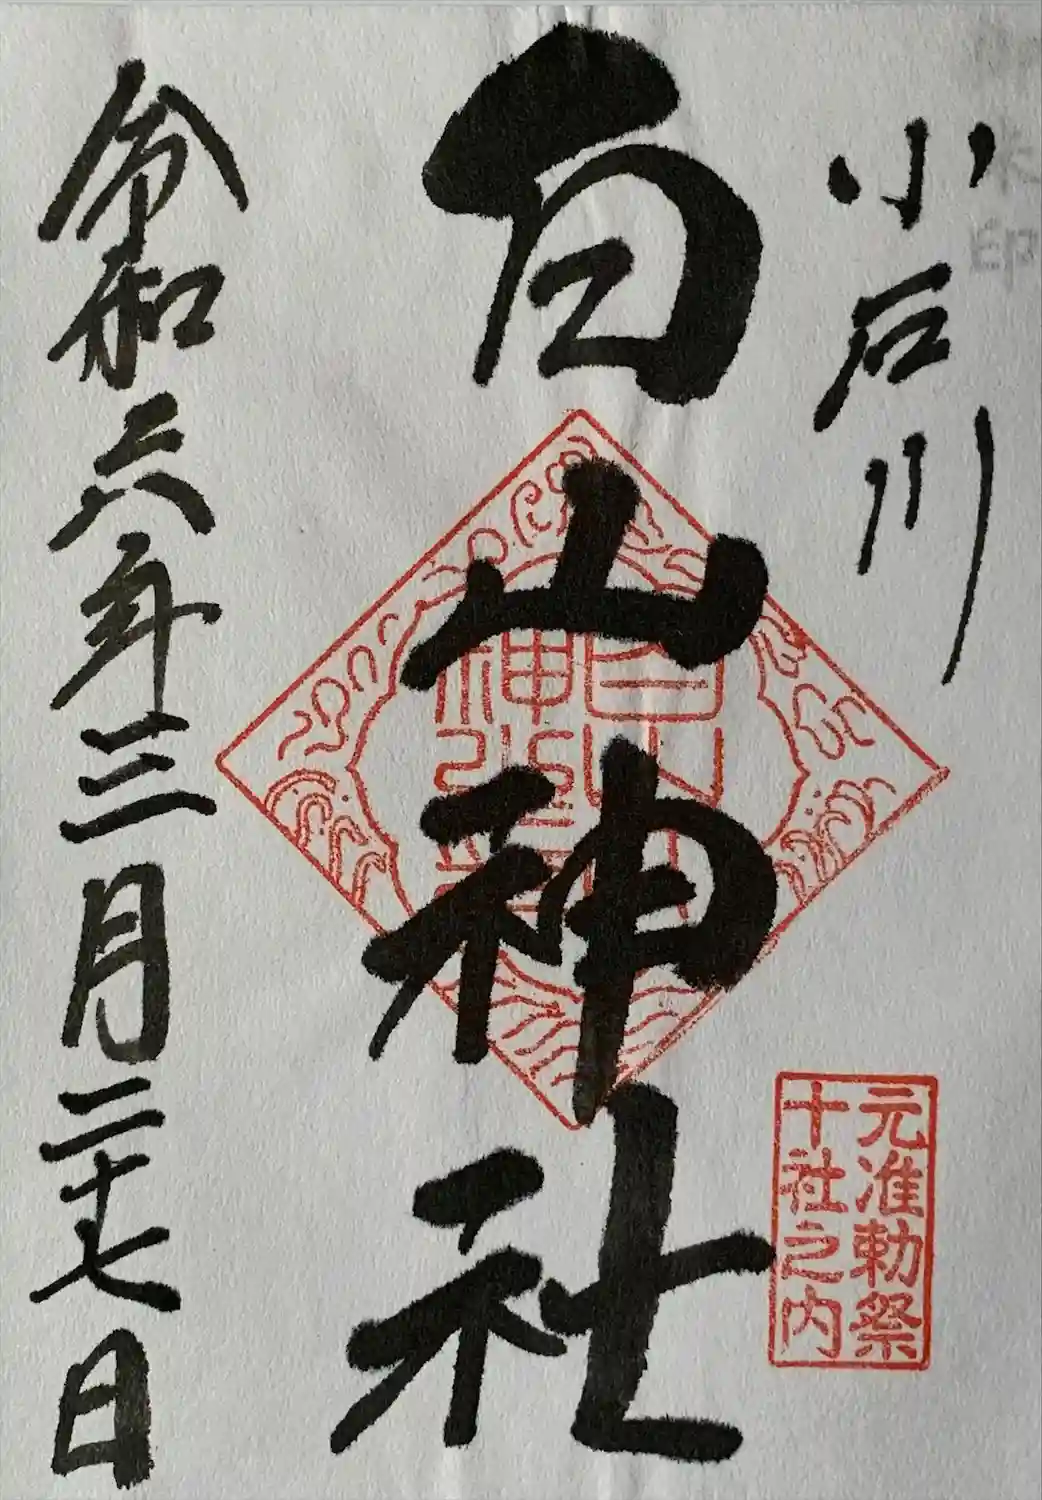 小石川
白山神社
令和六年三月二十七日
元准勅祭
十社之内